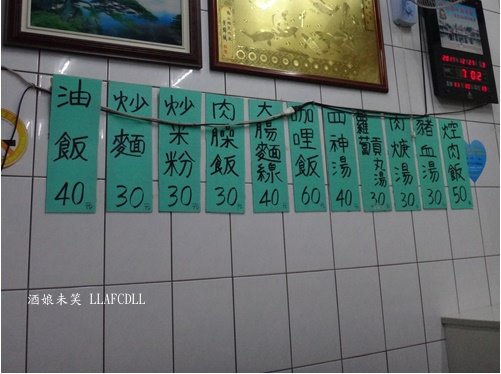 油飯 40元
炒麵 30元
炒米粉 30元
肉臊飯 30元
大腸麵線 40元
咖哩飯 60
四神湯 40
蘿蔔貢丸湯 30
肉焿湯 30
豬血湯 30
焢肉飯 50
7 02
酒娘未笑 LLAFCDLL